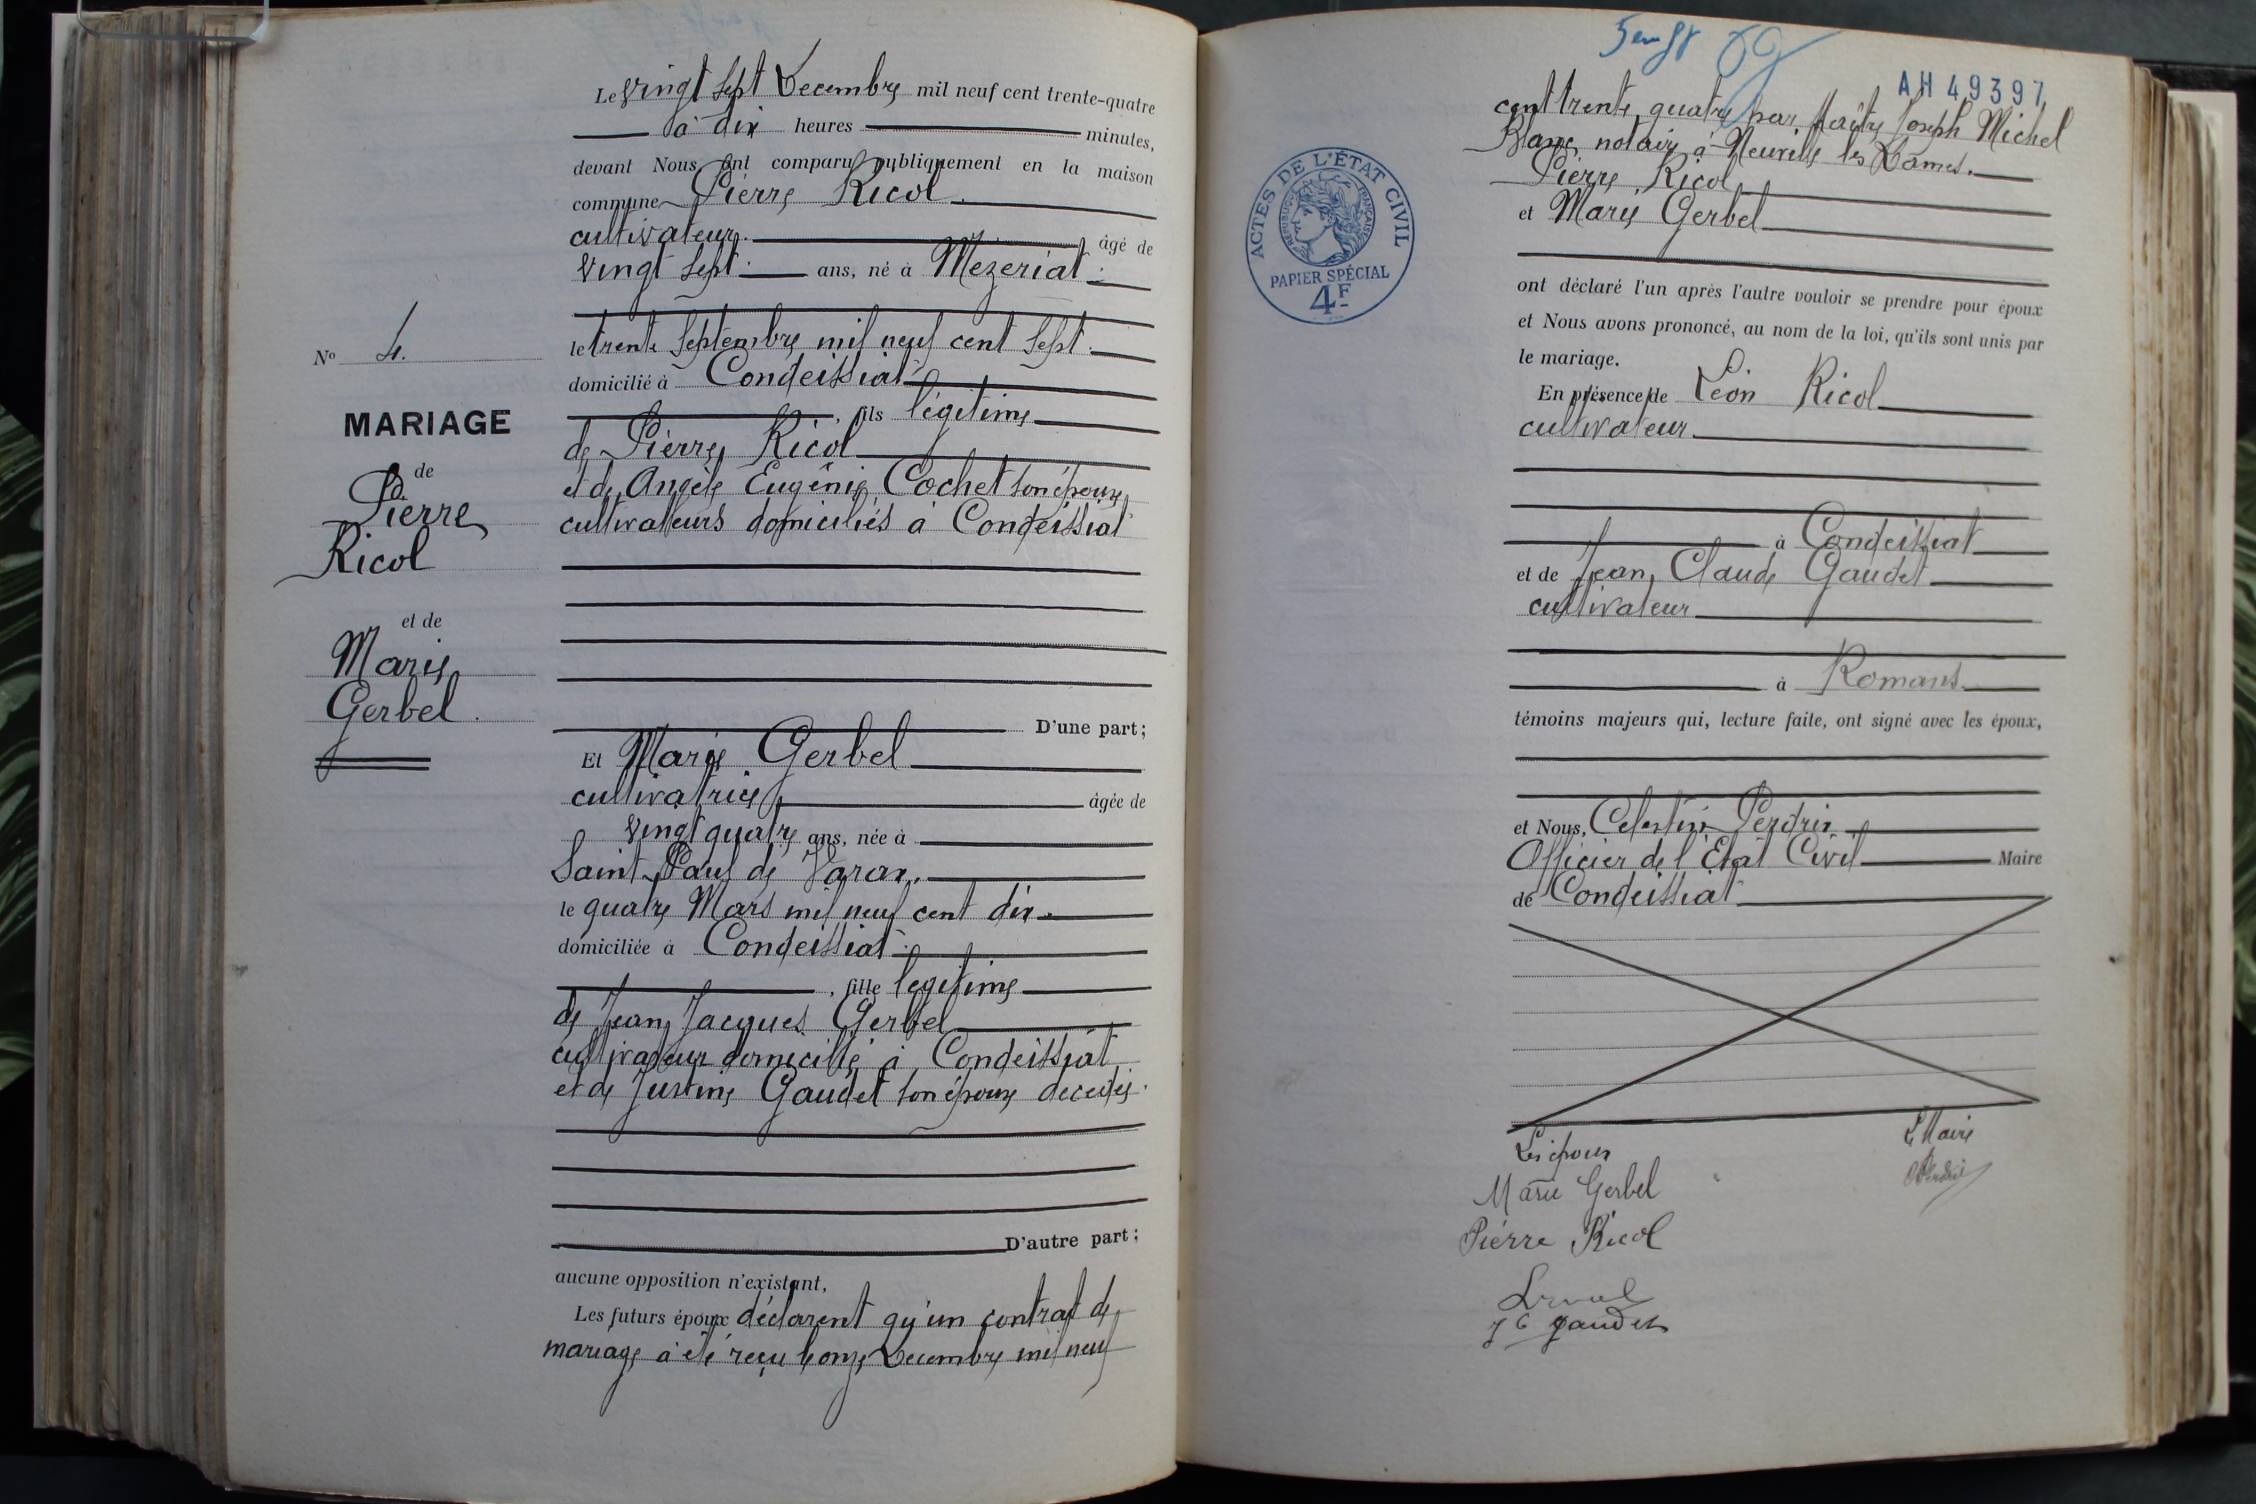 Le vingt sept Decembre mil neuf cent trente-quatre
à dix heures minutes,
devant Nous ont comparu publiquement en la maison
commune Pierre Ricol
cultivateur. âgé de
vingt sept ans, né à Mézériat
le trente Septembre mil neuf cent sept
domicilié à Condeissiat
, fils légitime
de Pierre Ricol
et de Angèle Eugénie Cochet son épouse
cultivateurs domiciliés à Condeissiat
D'une part;
Nº 4.
MARIAGE
de
Pierre
Ricol
et de
Marie
Gerbel.
Et Marie Gerbel
cultivatrice âgée de
vingt quatre ans, née à
Saint Paul de Varax.
le quatre Mars mil neuf cent dix
domiciliée à Condeissiat
, fille légitime
de Jean Jacques Gerbel
cultivateur domicilié à Condeissiat
et de Justine Gaudet son épouse decedée.
D'autre part;
aucune opposition n'existant,
Les futurs époux déclarent qu'un contrat de
mariage à été reçu le onze Decembre mil neuf
69
AH 49397
cent trente quatre par Maître Joseph Michel
Blanc notaire à Neuville les Dames.
Pierre Ricol
et Marie Gerbel
ACTES DE L'ÉTAT CIVIL
RÉPUBLIQUE FRANÇAISE
PAPIER SPÉCIAL
4F
ont déclaré l'un après l'autre vouloir se prendre pour époux
et Nous avons prononcé, au nom de la loi, qu'ils sont unis par
le mariage.
En présence de Léon Ricol
cultivateur
à Condeissiat
et de Jean Claude Gaudet
cultivateur
à Romans
témoins majeurs qui, lecture faite, ont signé avec les époux,
et Nous, Celestin Perdrix
Officier de l'Etat Civil Maire
de Condeissiat
Les époux
Le Maire
Marie Gerbel
Pierre Ricol
J C gaudet